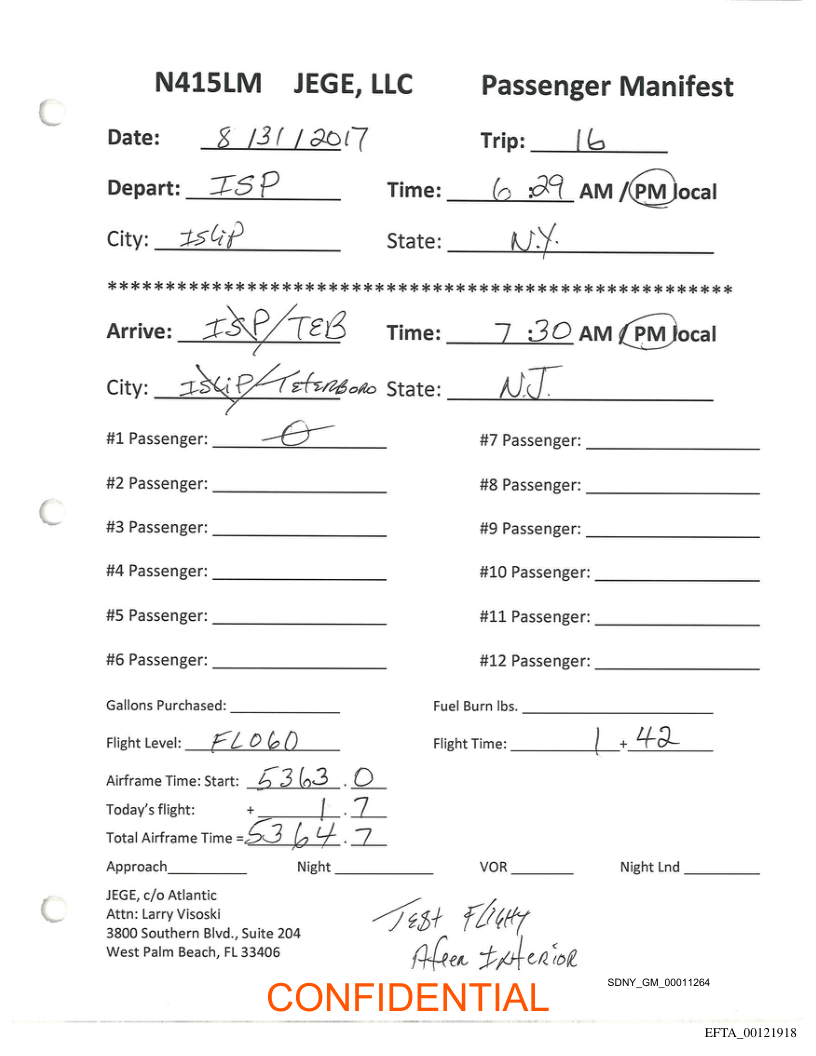 N415LM JEGE, LLC Passenger Manifest
Date: 8/31/2017 Trip: 16
Depart: ISP Time: 6:29 AM / PM local
City: ISLIP State: N.Y.
******************************************************
Arrive: ISP/TEB Time: 7:30 AM / PM local
City: ISLIP/TETERBORO State: N.J.
#1 Passenger: 0 #7 Passenger:
#2 Passenger: #8 Passenger:
#3 Passenger: #9 Passenger:
#4 Passenger: #10 Passenger:
#5 Passenger: #11 Passenger:
#6 Passenger: #12 Passenger:
Gallons Purchased: Fuel Burn lbs.
Flight Level: FL060 Flight Time: 1 + 42
Airframe Time: Start: 5363.0
Today's flight: + 1.7
Total Airframe Time = 5364.7
Approach Night VOR Night Lnd
JEGE, c/o Atlantic
Attn: Larry Visoski
3800 Southern Blvd., Suite 204
West Palm Beach, FL 33406
TEST FLIGHT
AFTER INTERIOR
SDNY_GM_00011264
CONFIDENTIAL
EFTA_00121918